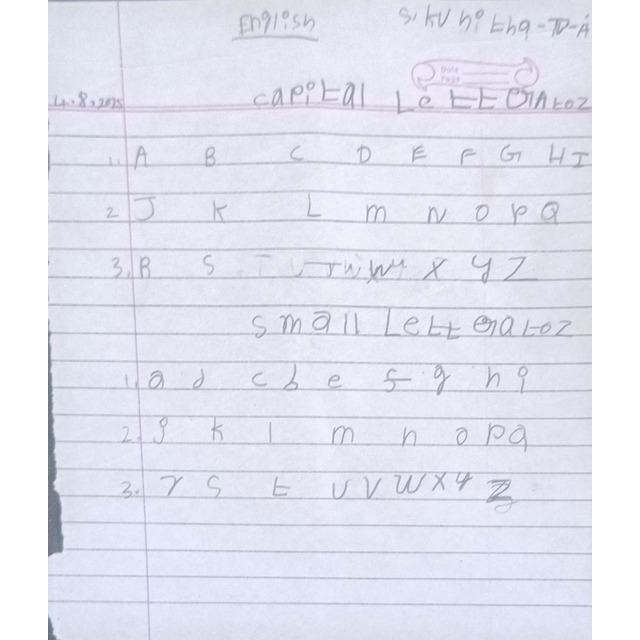 English
4.8.2025 Capital Letter A to Z
1. A B C D E F G H I
2 J K L m n O P Q
3. R S T U V W X Y Z
Small Letter a to Z
1. a d c b e f g h i
2. j k l m n o p q
3. r s t u v w x y z